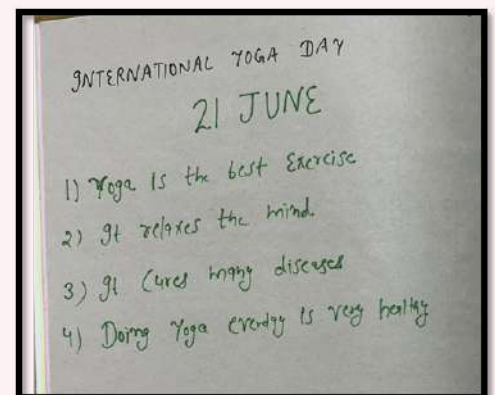 INTERNATIONAL YOGA DAY
21 JUNE
1) Yoga Is the best Exercise
2) It relaxes the mind.
3) It Cures many diseases
4) Doing Yoga everday is very healthy